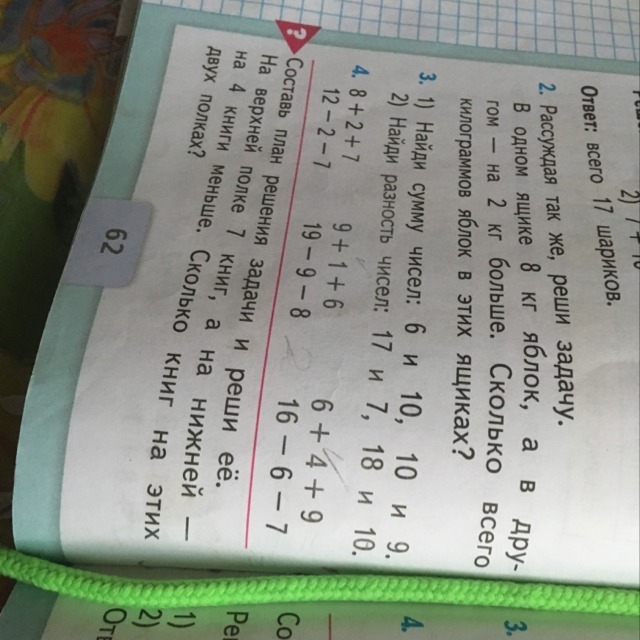 2) 7 +
Ответ: всего 17 шариков.
2. Рассуждая так же, реши задачу.
В одном ящике 8 кг яблок, а в дру-
гом — на 2 кг больше. Сколько всего
килограммов яблок в этих ящиках?
3. 1) Найди сумму чисел: 6 и 10, 10 и 9.
2) Найди разность чисел: 17 и 7, 18 и 10.
4. 8 + 2 + 7 9 + 1 + 6 6 + 4 + 9
12 − 2 − 7 19 − 9 − 8 16 − 6 − 7
? Составь план решения задачи и реши её.
На верхней полке 7 книг, а на нижней —
на 4 книги меньше. Сколько книг на этих
двух полках?
62
3.
4.
Со
Ре
1)
2)
От